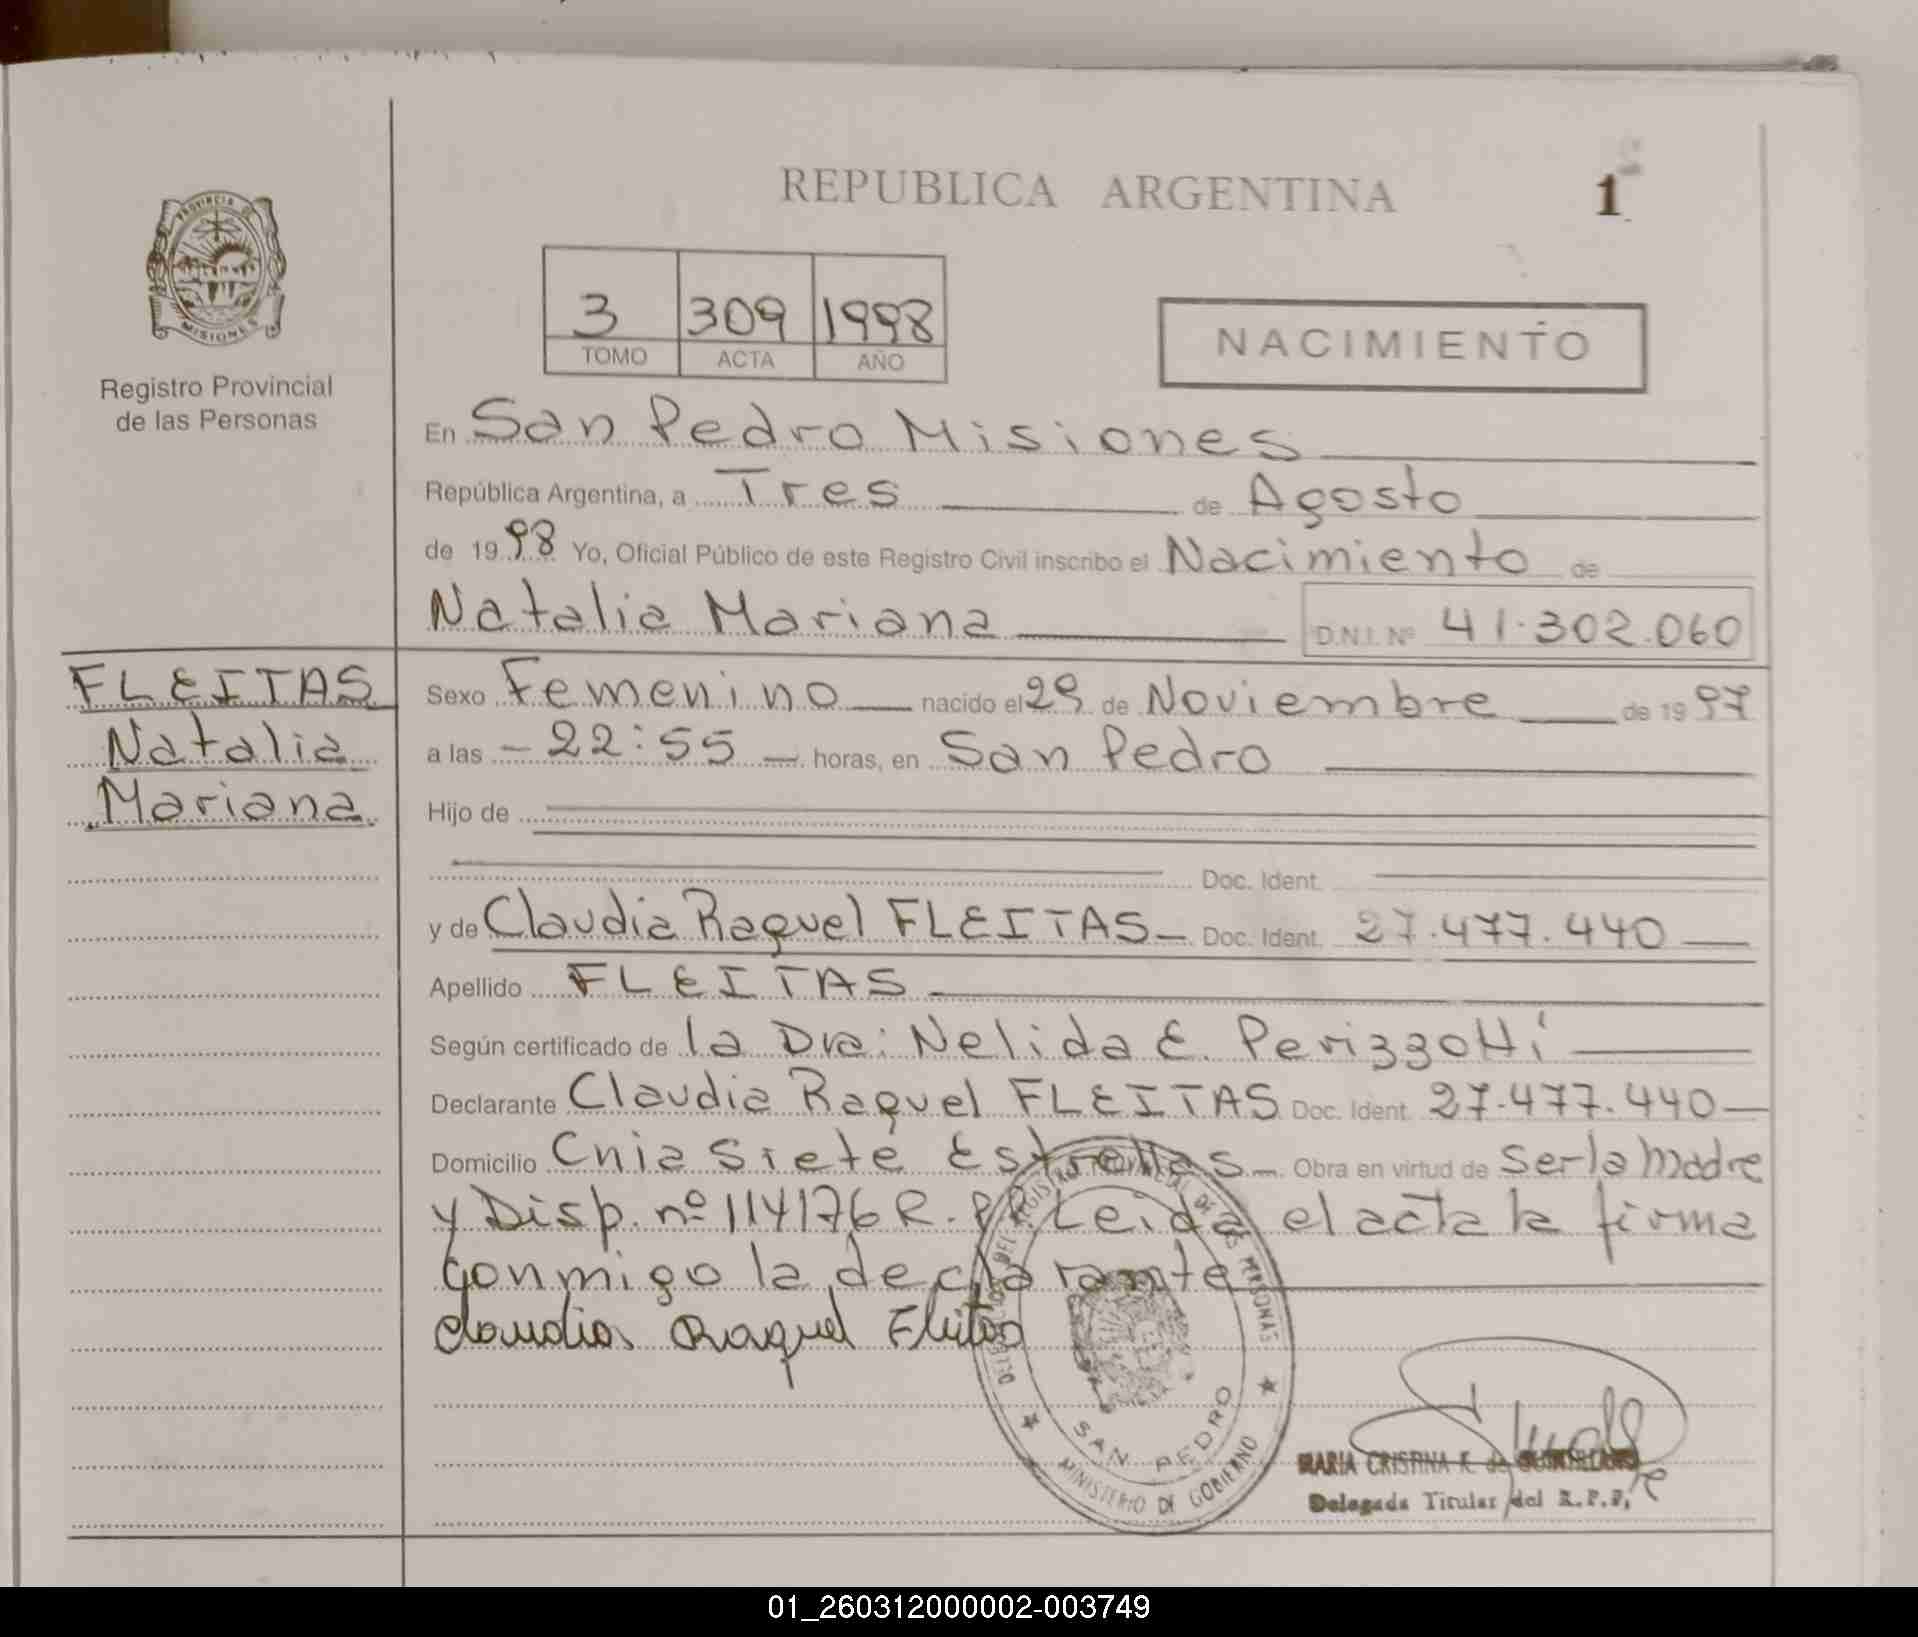 REPUBLICA ARGENTINA
1
PROVINCIA DE
MISIONES
Registro Provincial
de las Personas
3 309 1998
TOMO ACTA AÑO
NACIMIENTO
En San Pedro Misiones
República Argentina, a Tres de Agosto
de 1998 Yo, Oficial Público de este Registro Civil inscribo el Nacimiento de
Natalia Mariana D.N.I. Nº 41.302.060
FLEITAS
Natalia
Mariana
Sexo Femenino nacido el 29 de Noviembre de 1997
a las - 22:55 - horas, en San Pedro
Hijo de
Doc. Ident.
y de Claudia Raquel FLEITAS - Doc. Ident. 27.477.440
Apellido FLEITAS
Según certificado de la Dra: Nelida E. Perizzotti
Declarante Claudia Raquel FLEITAS Doc. Ident. 27.477.440
Domicilio Cnia Siete Estrellas - Obra en virtud de Ser la Madre
y Disp. nº 114176 R.P.P. Leida el acta la firma
conmigo la declarante
Claudia Raquel Fleitas
DEL REGISTRO PROVINCIAL DE LAS PERSONAS
SAN PEDRO
MINISTERIO DE GOBIERNO
MARIA CRISTINA F. de
Delegada Titular del R.P.P.
01_260312000002-003749